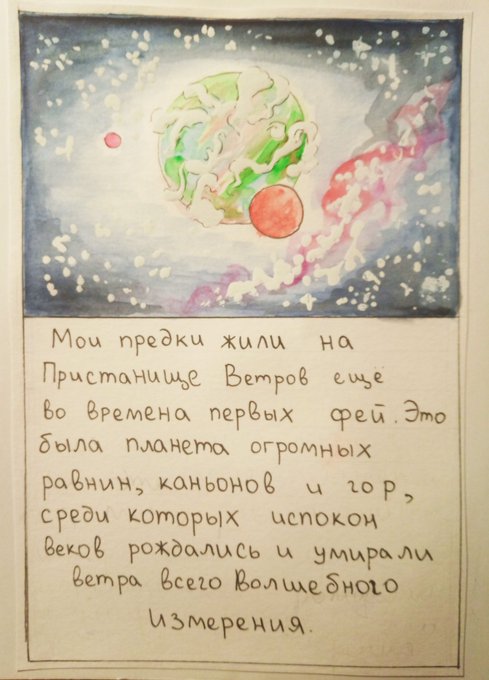 Мои предки жили на
Пристанище Ветров ещё
во времена первых фей. Это
была планета огромных
равнин, каньонов и гор,
среди которых испокон
веков рождались и умирали
ветра всего Волшебного
Измерения.